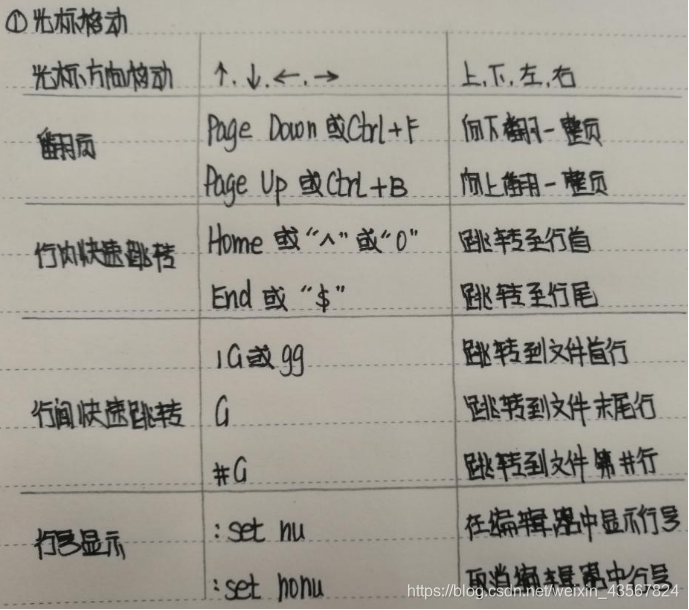 ①光标移动
光标方向移动 ↑.↓.←.→ 上.下.左.右
翻页 Page Down 或Ctrl+F 向下翻一整页
Page Up 或Ctrl+B 向上翻一整页
行内快速跳转 Home 或"^"或"0" 跳转至行首
End 或 "$" 跳转至行尾
1G或 gg 跳转到文件首行
行间快速跳转 G 跳转到文件末尾行
#G 跳转到文件第#行
行号显示 :set nu 在编辑器中显示行号
:set nonu 取消编辑器中行号
https://blog.csdn.net/weixin_43567824